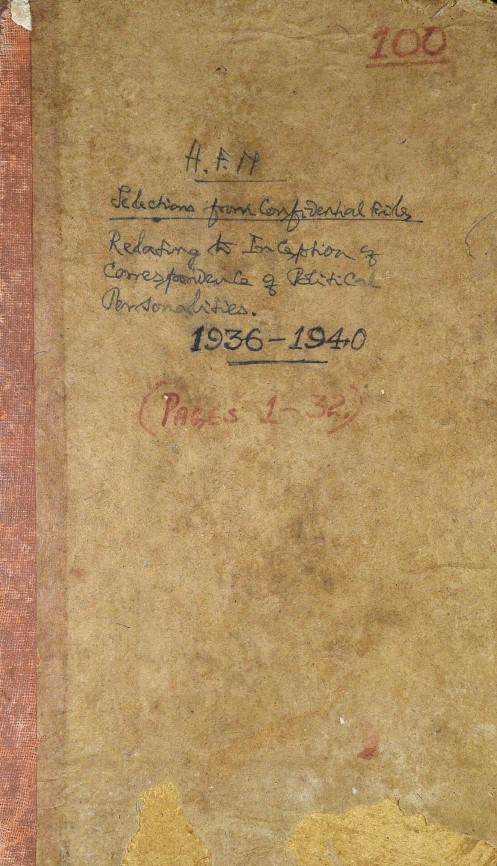 100
H.F.M
Selections from Confidential Files
Relating to Inception of
Correspondence of Political
Personalities.
1936-1940
(PAGES 1-32)